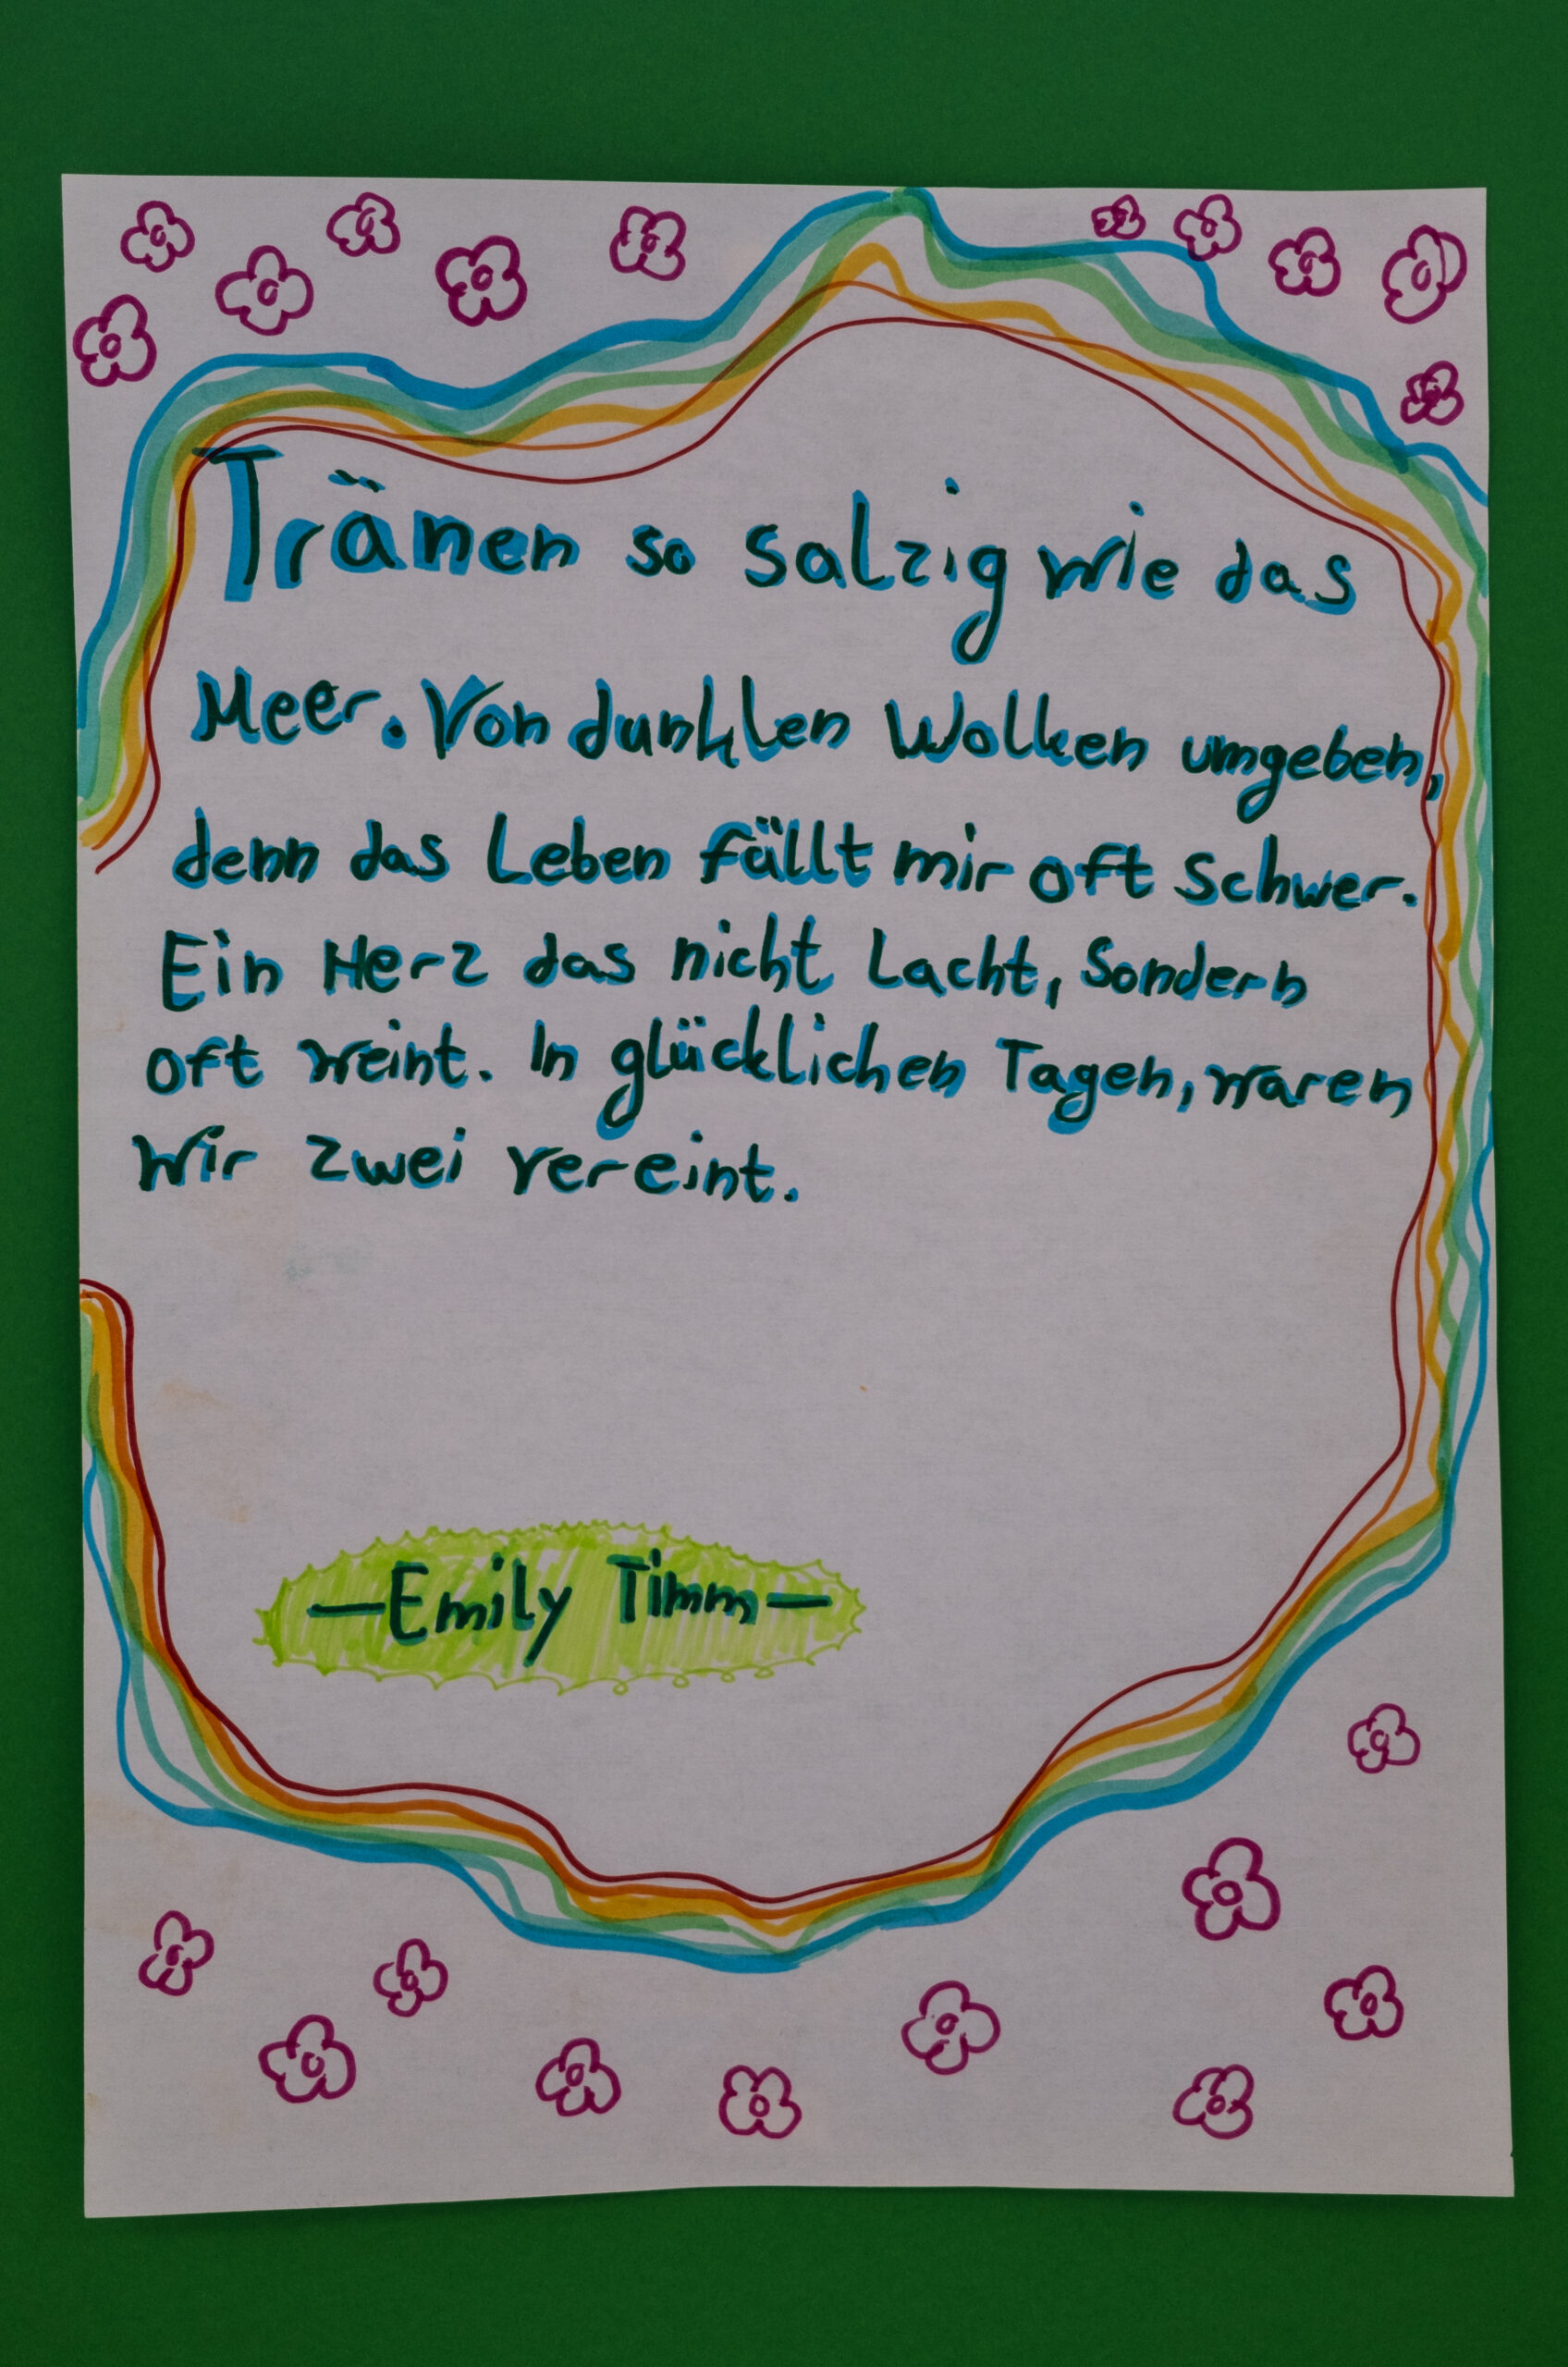 Tränen so salzig wie das
Meer. Von dunklen Wolken umgeben,
denn das Leben fällt mir oft schwer.
Ein Herz das nicht Lacht, sondern
oft weint. In glücklichen Tagen, waren
wir zwei vereint.
—Emily Timm—